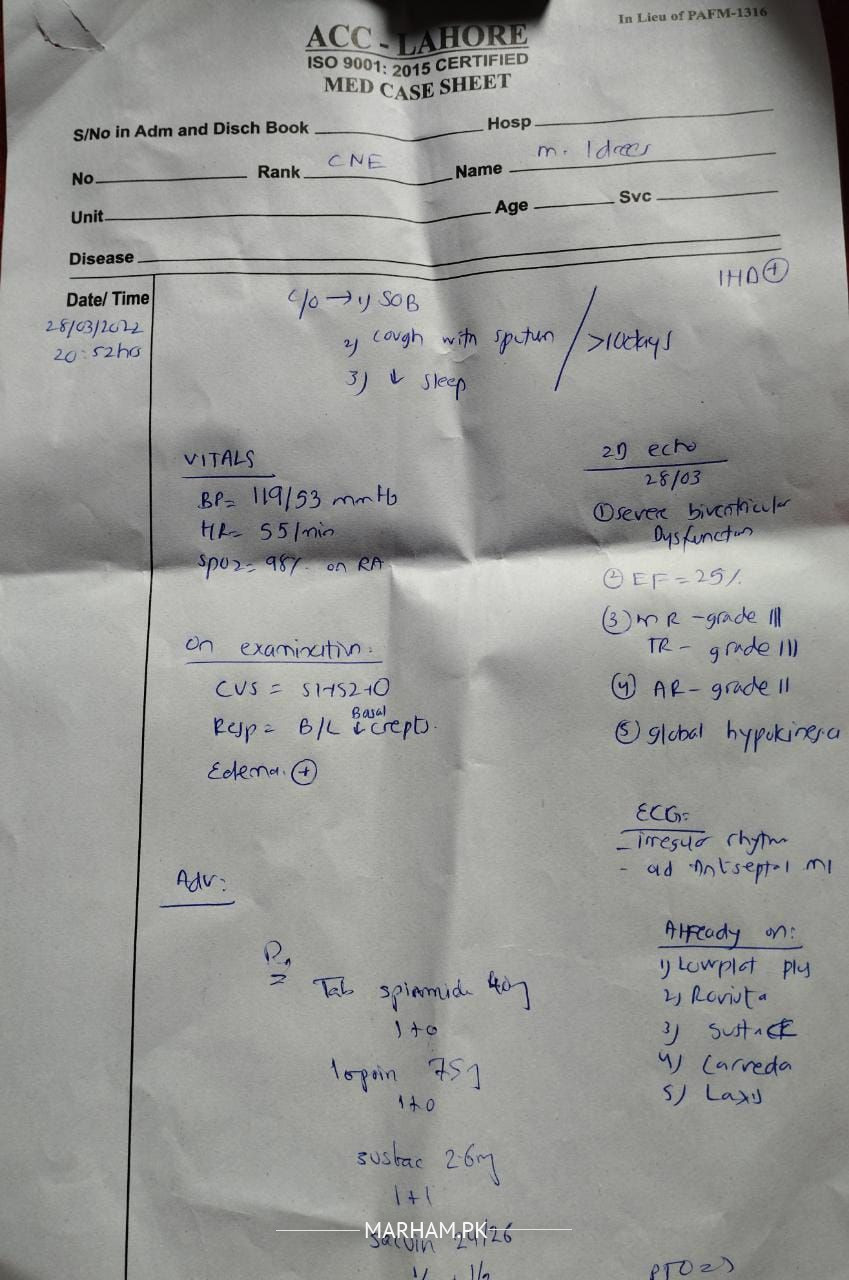 In Lieu of PAFM-1316
ACC - LAHORE
ISO 9001: 2015 CERTIFIED
MED CASE SHEET
S/No in Adm and Disch Book
Hosp
No.
Rank CNE
Name m. Idrees
Unit
Age
Svc
Disease
IHD +
Date/ Time
28/03/2022
20:52hrs
c/o → 1) SOB
2) Cough with sputum
3) ↓ sleep
>10days
VITALS
BP= 119/53 mmHb
HR= 55/min
SPO2= 98% on RA
On examination:
CVS = S1+S2+0
Resp = B/L ↓ Basal crepts.
Edema. +
2D echo
28/03
① severe biventricular
Dysfunction
② EF = 25%
③ MR - grade III
TR - grade III
④ AR - grade II
⑤ global hypokinesia
ECG=
- irregular rhythm
- old Antseptal MI
Already on:
1) Lowplat plus
2) Rovista
3) Sustac
4) Carveda
5) Lasix
Adv:
Rx
Tab spiromide 40mg
1+0
75mg
1+0
sustac 2.6mg
1+1
24/26
PTO
MARHAM.PK